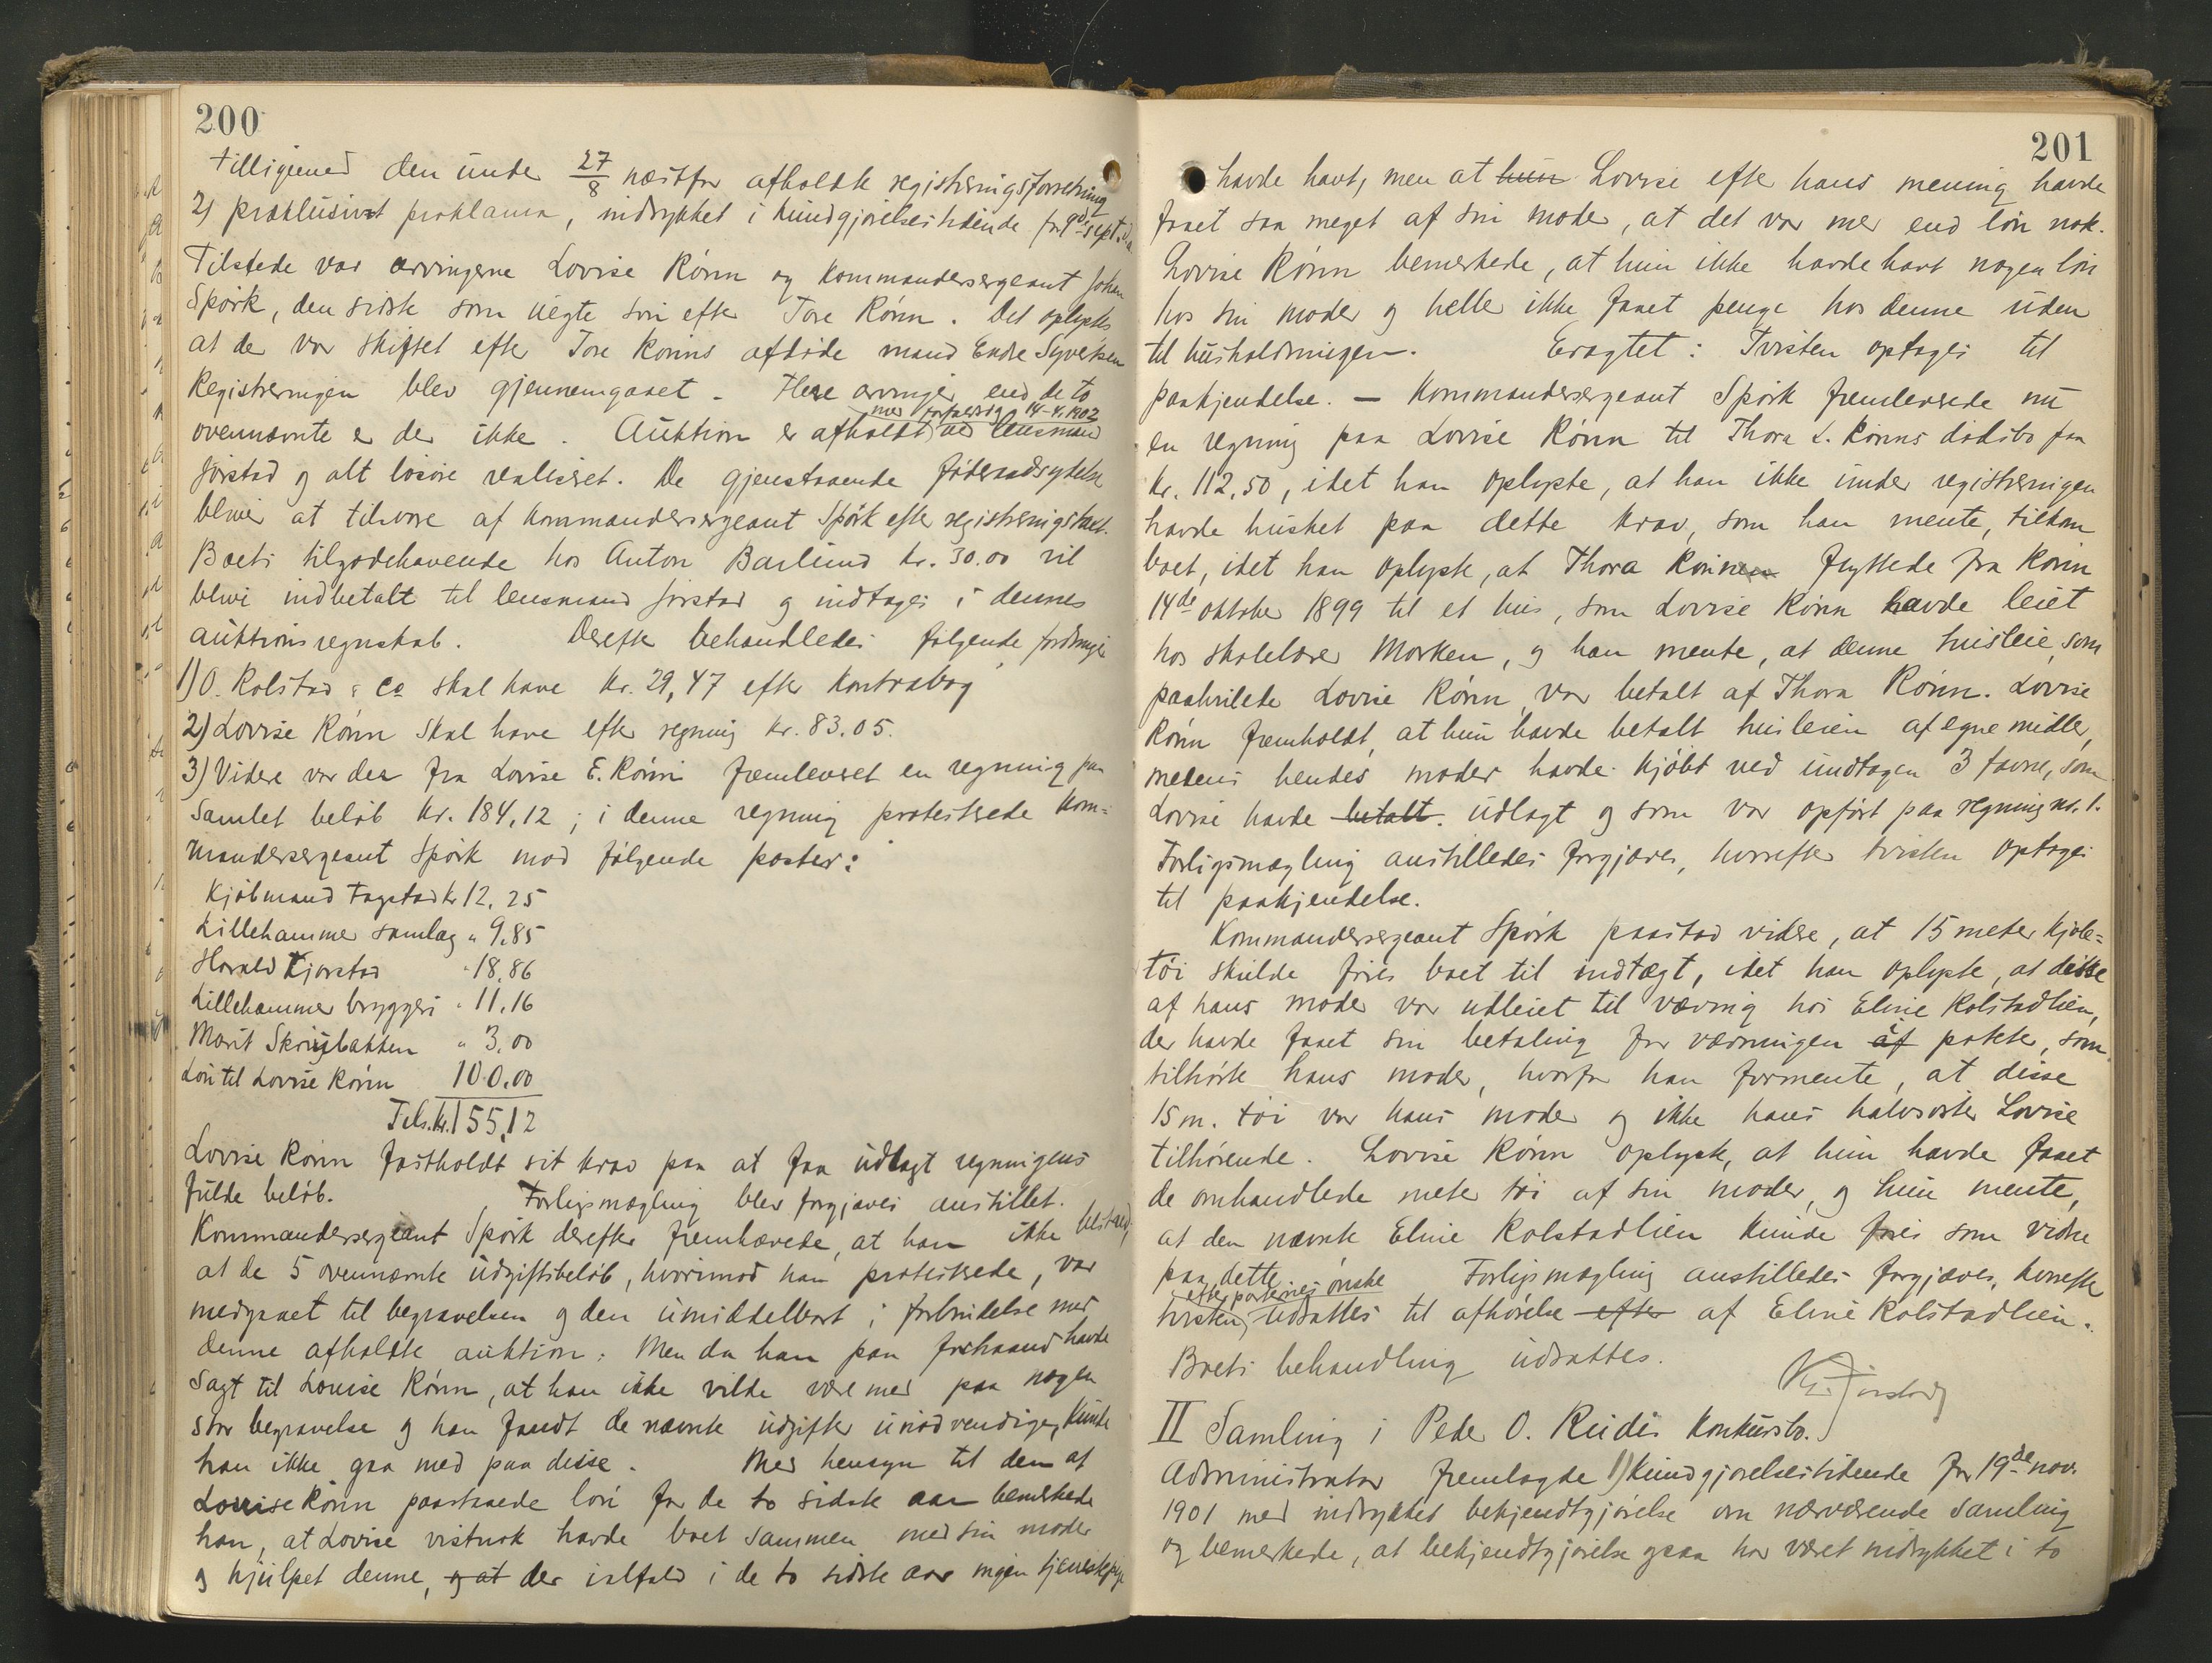 200
tilligemed den under 27/8 næstfor afholdte registreringsforretning
2) præklusivt proklama, indrykket i kundgjørelsestidende for 9de sept. d. a.
Tilstede var arvingerne Lovise Rönn og kommandersergeant Johan
Spörk, den sidste som uegte sön efter Tore Rönn. Det oplystes
at der var skiftet efter Tore Rönns afdöde mand Endre Syversen
Registreringen blev gjennemgaaet. Flere arvinger end de to
ovennævnte er der ikke. Auktion er afholdt ved lensmand
med forfaldsdag 14-4-1902
Jörstad og alt lösöre realiseret. De gjenstaaende föderaadsydelser
bliver at tilsvare af kommandersergeant Spörk efter registreringstaxt.
Boets tilgodehavende hos Anton Barlund kr. 30.00 vil
blive indbetalt til lensmand Jörstad og indtages i dennes
auktionsregnskab. Derefter behandledes følgende fordringer
1) O. Kolstad & Co skal have kr. 29,47 efter kontrabog
2) Lovise Rönn skal have efter regning kr. 83.05.
3) Videre var der fra Lovise E. Rönn fremleveret en regning paa
samlet beløb kr. 184,12; i denne regning protesterede kom=
mandersergeant Spörk mod følgende poster:
Kjöbmand Fagstad kr 12,25
Lillehammer samlag " 9.85
Harald Kjorstad " 18,86
Lillehammer bryggeri " 11,16
Marit Skriubakken " 3,00
Lön til Lovise Rönn 100,00
Tils. kr. 155,12
Lovise Rönn fastholdt sit krav paa at faa udlagt regningens
fulde belöb. Forligsmægling blev forgjæves anstillet.
Kommandersergeant Spörk derefter fremhævede, at han ikke bestred,
at de 5 ovennævnte udgiftsbeløb, hvorimod han protesterede, var
medgaaet til begravelsen og den umiddelbart i forbindelse med
denne afholdte auktion. Men da han paa forhaand havde
sagt til Louise Rönn, at han ikke vilde være med paa nogen
stor begravelse og han fandt de nævnte udgifter unödvendige, kunde
han ikke gaa med paa disse. Med hensyn til den af
Louise Rönn paastaaede lön for de to sidste aar bemerkede
han, at Lovise vistnok havde boet sammen med sin moder
og hjulpet denne, og at der ialfald i de to sidste aar ingen tjenestepige
201
havde havt, men at hun Lovise efter hans mening havde
faaet saa meget af sin moder, at det var mer end lön nok.
Lovise Rönn bemerkede, at hun ikke havde havt nogen lön
hos sin moder og heller ikke faaet penge hos denne uden
til husholdningen. Eragtet: Tvisten optages til
paakjendelse. — Kommandersergeant Spörk fremleverede nu
en regning paa Lovise Rönn til Thora L. Rönns dödsbo paa
kr. 112.50, idet han oplyste, at han ikke under registreringen
havde husket paa dette krav, som han mente, tilkom
boet, idet han oplyste, at Thora Rönnen flyttede fra Rönn
14de oktober 1899 til et hus, som Lovise Rönn havde leiet
hos skolelærer Morken, og han mente, at denne husleie, som
paahvilede Lovise Rönn, var betalt af Thora Rönn. Lovise
Rönn fremholdt, at hun havde betalt husleien af egne midler,
medens hendes moder havde kjöbt ved undtagen 3 favne, som
Lovise havde betalt. udlagt og som var opfört paa regning nr. 1.
Forligsmægling anstilledes forgjæves, hvorefter tvisten optages
til paakjendelse.
Kommandersergeant Spörk paastod videre, at 15 meter kjole=
töi skulde föres boet til indtægt, idet han oplyste, at disse
af hans moder var udleiet til vævning hos Eline Kolstadlien,
der havde faaet sin betaling for vævningen af poteter, som
tilhörte hans moder, hvorfor han formente, at disse
15 m. töi var hans moder og ikke hans halvsöster Lovise
tilhörende. Lovise Rönn oplyste, at hun havde faaet
de omhandlede meter töi af sin moder, og hun mente,
at den nævnte Eline Kolstadlien kunde föres som vidne
paa dette. Forligsmægling anstilledes forgjæves, hvorefter
efter parternes önske
tvisten udsattes til afhörelse efter af Eline Kolstadlien.
Boets behandling udsattes.
K. Fjørstad
II Samling i Peder O. Ruds konkursbo.
Administrator fremlagde 1) Kundgjörelsestidende for 19de nov.
1901 med indrykket bekjendtgjörelse om nærværende samling
og bemerkede, at bekjendtgjörelse ogsaa har været indrykket i to